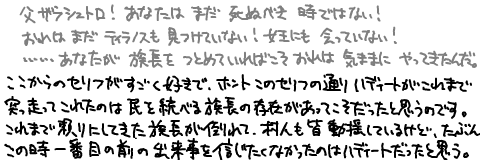 父ザラシュトロ！あなたは まだ 死ぬべき 時ではない！
おれは まだ ティラノスも 見つけていない！女王にも 会っていない！
……あなたが 族長を つとめていればこそ おれは 気ままに やってきたんだ。
ここからのセリフがすごく好きで、ホントこのセリフの通りハディートがこれまで
突っ走ってこれたのは 民を統べる族長の存在があってこそだったと思うのです。
これまで頼りにしてきた族長が倒れて、村人も皆動揺しているけど、たぶん
この時一番目の前の出来事を信じたくなかったのはハディートだったと思う。